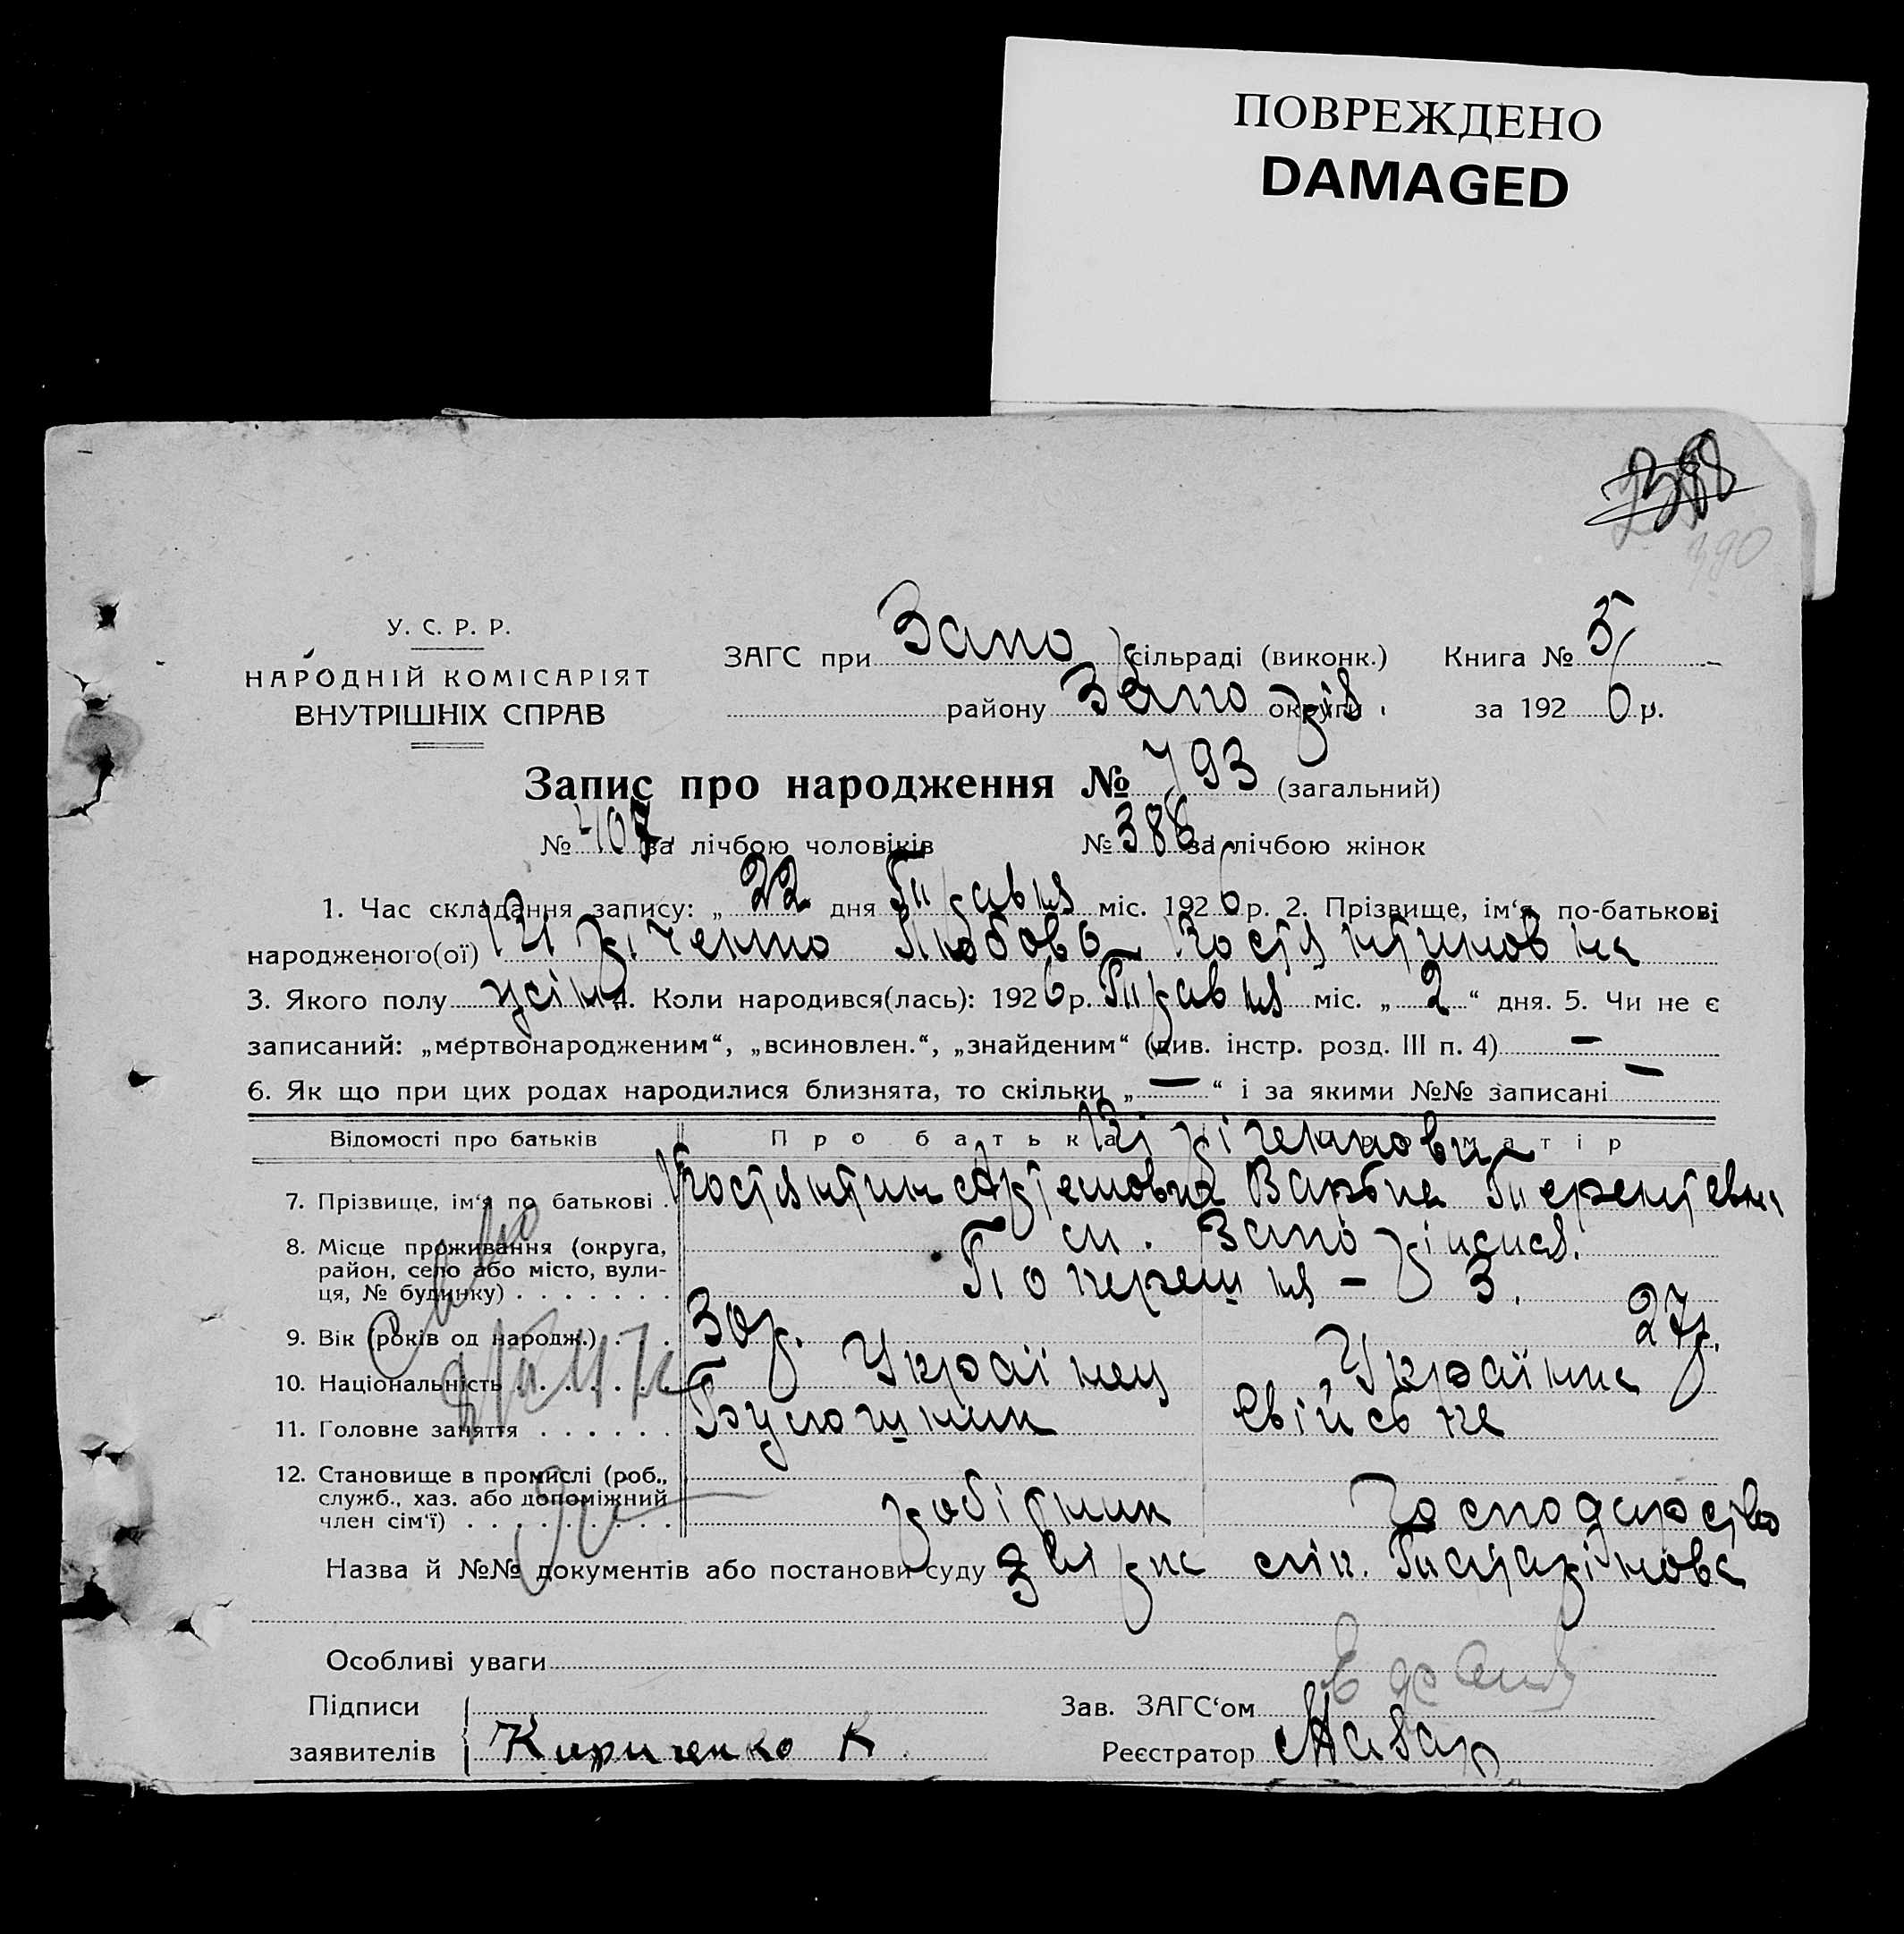 ПОВРЕЖДЕНО
DAMAGED
388
390
У. С. Р. Р.
НАРОДНІЙ КОМІСАРІЯТ
ВНУТРІШНІХ СПРАВ
ЗАГС при Запо сільраді (виконк.) Книга № 5
району Запо округи за 1926 р.
Запис про народження № 793 (загальний)
№ 407 за лічбою чоловіків № 388 за лічбою жінок
1. Час складання запису: „ 22 дня Травня міс. 1926 р. 2. Прізвище, ім‘я, по-батькові
народженого(ої) Кіріченко Любов Костянтиновна
3. Якого полу жін 4. Коли народився(лась): 1926 р. Травня міс. „ 2 “ дня. 5. Чи не є
записаний: „мертвонародженим“, „всиновлен.“, „знайденим“ (див. інстр. розд. III п. 4) —
6. Як що при цих родах народилися близнята, то скільки „ — “ і за якими №№ записані —
Відомості про батьків Про батька матір
Кіріченкови
7. Прізвище, ім‘я по батькові . Костянтин Артемович Варвка Терентевна
8. Місце проживання (округа,
район, село або місто, вули-
ця, № будинку) . . . . . . .
м. Запоріжжя.
Поперешня - 3.
9. Вік (років од народж.) . . . 30 р. 27 р.
10. Національність . . . . . . . Українец Українка
11. Головне заняття . . . . . . Булошник Свійське
12. Становище в промислі (роб.,
служб., хаз. або допоміжний
член сім‘ї) . . . . . . . . . . робітник господарство
Назва й №№ документів або постанови суду
Особливі уваги
Підписи Зав. ЗАГС‘ом
заявителів Кириченко К. Реєстратор Назар